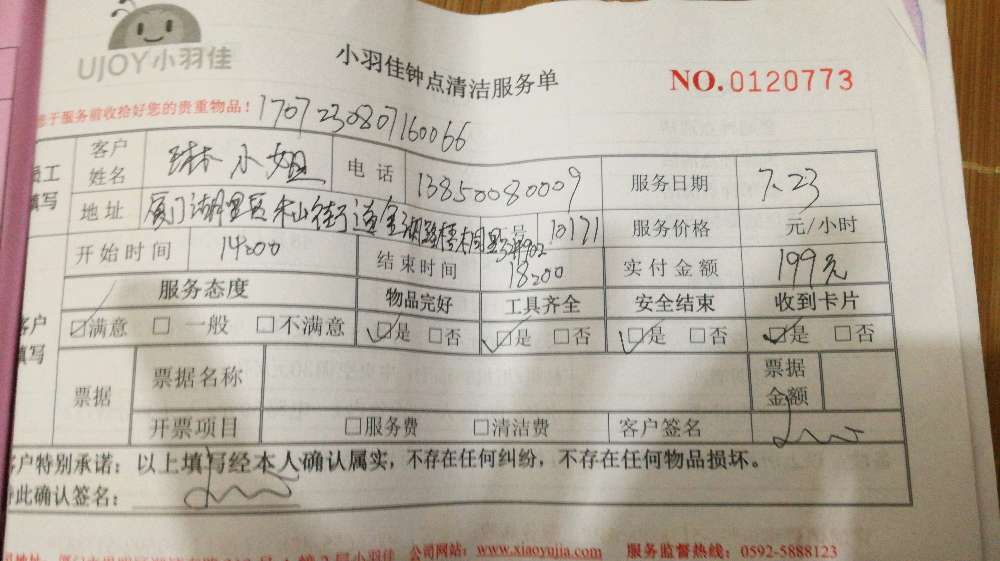 UJOY小羽佳
小羽佳钟点清洁服务单
NO.0120773
于服务前收拾好您的贵重物品!
1707230807160066
员工填写
客户姓名 林小姐 电话 13850080009 服务日期 7.23
地址 厦门湖里区禾山街道金湖路 号 10171 服务价格 元/小时
开始时间 14:00 结束时间 18:00 实付金额 199元
客户填写
服务态度 物品完好 工具齐全 安全结束 收到卡片
☑满意 □一般 □不满意 ☑是 □否 ☑是 □否 ☑是 □否 ☑是 □否
票据 票据名称 票据金额
开票项目 □服务费 □清洁费 客户签名
客户特别承诺:以上填写经本人确认属实,不存在任何纠纷,不存在任何物品损坏。
此确认签名:
公司网站:www.xiaoyujia.com 服务监督热线:0592-5888123